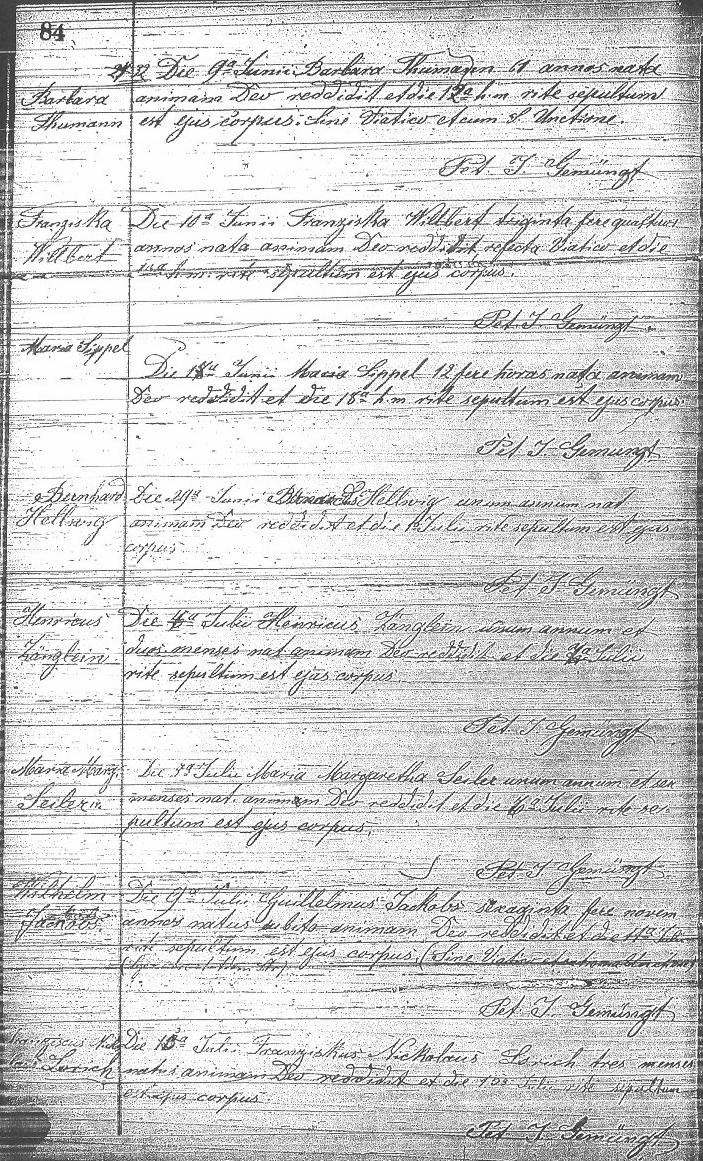 84
Die 9a Junii Barbara Thumann 61 annos nata
Barbara animam Deo reddidit et die 12a h.m. rite sepultum
Thumann est ejus corpus. Sine Viatico et cum S. Unctione.
Pet. J. Gemüngt
Franziska Die 10a Junii Franziska Willbert triginta fere quattuor
Willbert annos nata animam Deo reddidit refecta Viatico et die
h.m. rite sepultum est ejus corpus.
Pet. J. Gemüngt
Maria Lippel
Die 18a Junii Maria Lippel 12 fere horas nata animam
Deo reddidit et die 18a h.m rite sepultum est ejus corpus.
Pet J. Gemüngt
Bernhard Die 29a Junii Hellwig unum annum nat
Hellwig animam Deo reddidit et die 1 Julii rite sepultum est ejus
corpus
Pet J Gemüngt
Henricus Die Julii Henricus Zänglein unum annum et
Zänglein duos menses nat animam Deo reddidit et die Julii
rite sepultum est ejus corpus
Pet. J Gemüngt
Maria Marg. Die Julii Maria Margaretha Seiler unum annum et sex
Seiler menses nat. animam Deo reddidit et die 6a Julii rite se-
pultum est ejus corpus.
Pet J. Gemüngt
Wilhelm Die 9a Julii Guillelmus Jackobs sexaginta fere novem
Jackobs annos natus subito animam Deo reddidit et die 11a Julii
rite sepultum est ejus corpus. (Sine Viatico et
Pet. J. Gemüngt
Franciscus Die Julii Franziskus Nickolaus Lorich tres menses
Lorich natus animam Deo reddidit et die Julii rite sepultum
est ejus corpus.
Pet J. Gemüngt